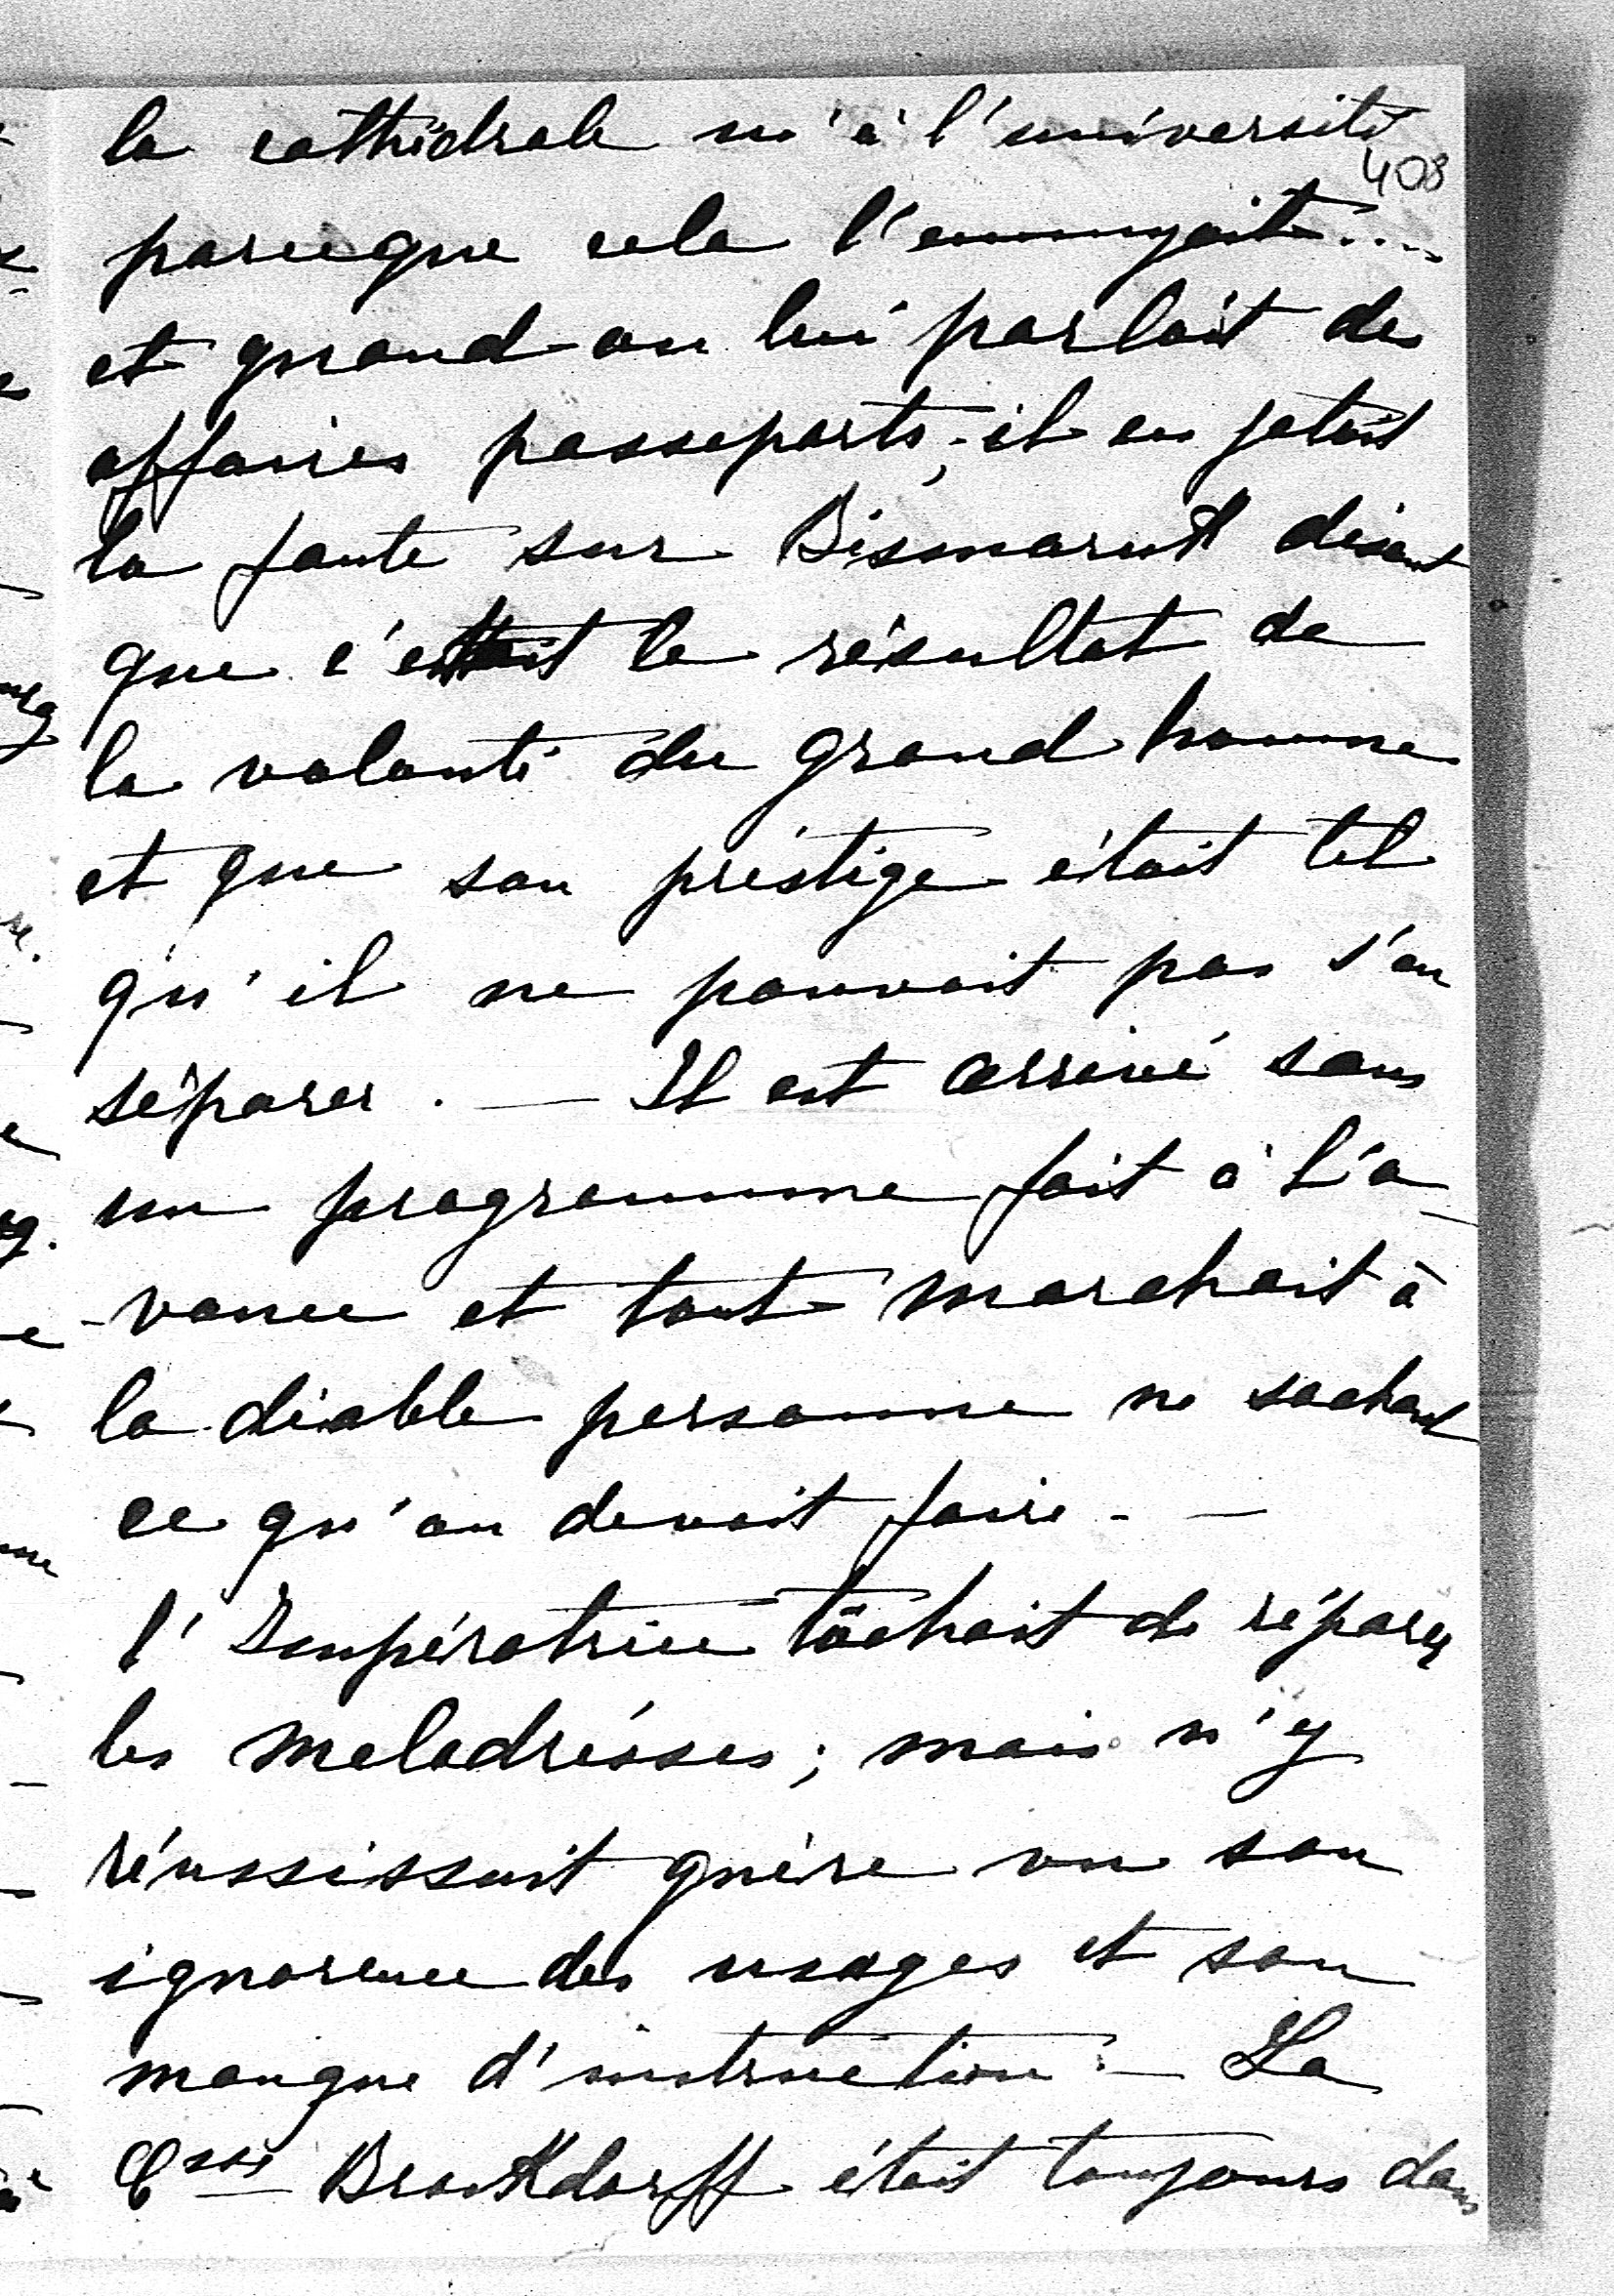 la cathédrale ni à l'université
408
parceque cela l'ennuyait....
et quand on lui parlait des
affaires passeports, il en jetait
la faute sur Bismarck disant
que c'était le résultat de
la volonté du grand homme
et que son préstige était tel
qu'il ne pouvait pas s'en
séparer. — Il est arrivé sans
un programme fait à l'a-
-vance et tout marchait à
la diable personne ne sachant
ce qu'on devait faire. —
l'Impératrice tâchait de réparer
les maladrésses; mais n'y
réussissait guère vu son
ignorence des usages et son
manque d'instruction. — La
Csse Brockdorff était toujours dans